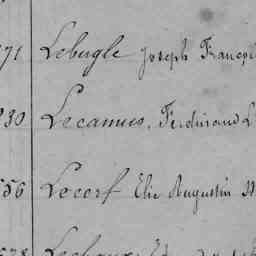 71 Lebugle Joseph François
230 Lecamus, Ferdinand L
556 Lecerf Elie Augustin